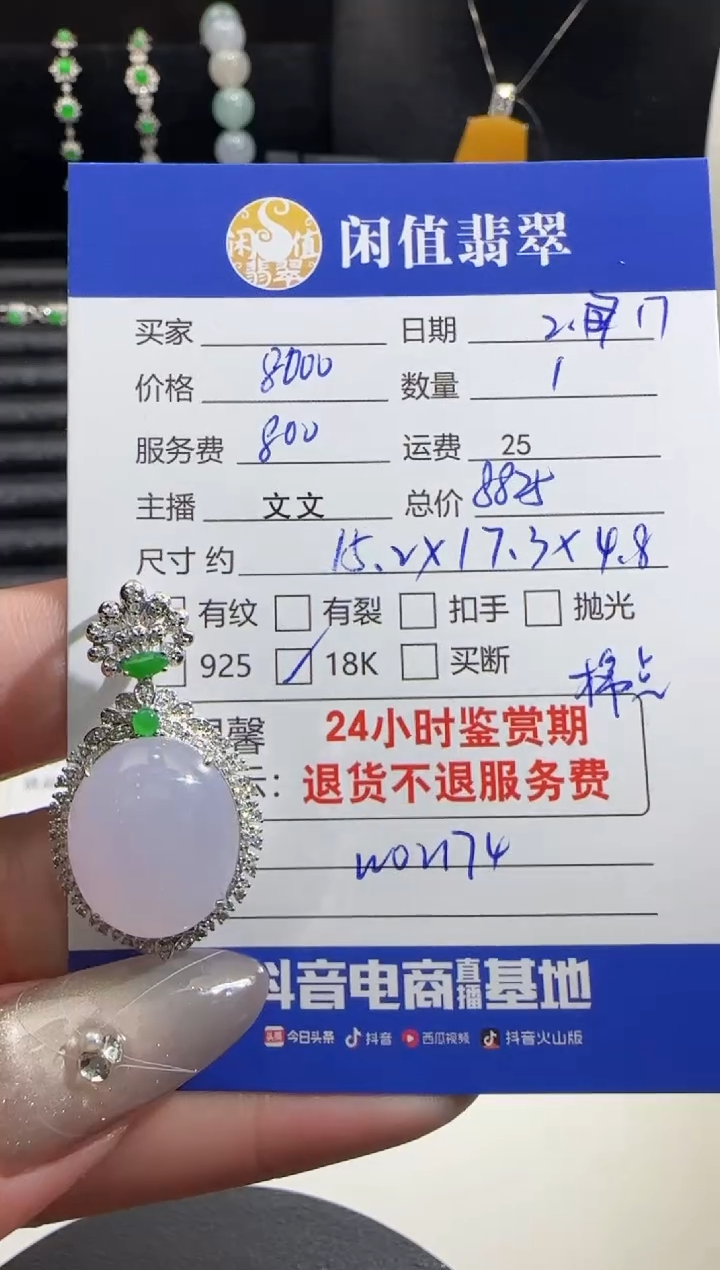 闲值翡翠
闲值翡翠
买家 日期 2. 17
价格 8000 数量 1
服务费 800 运费 25
主播 文文 总价 8825
尺寸 约 15.2×17.3×4.8
有纹 有裂 扣手 抛光
925 18K 买断
棉点
馨 24小时鉴赏期
示: 退货不退服务费
W02174
抖音电商直播基地
头条 今日头条 抖音 西瓜视频 抖音火山版